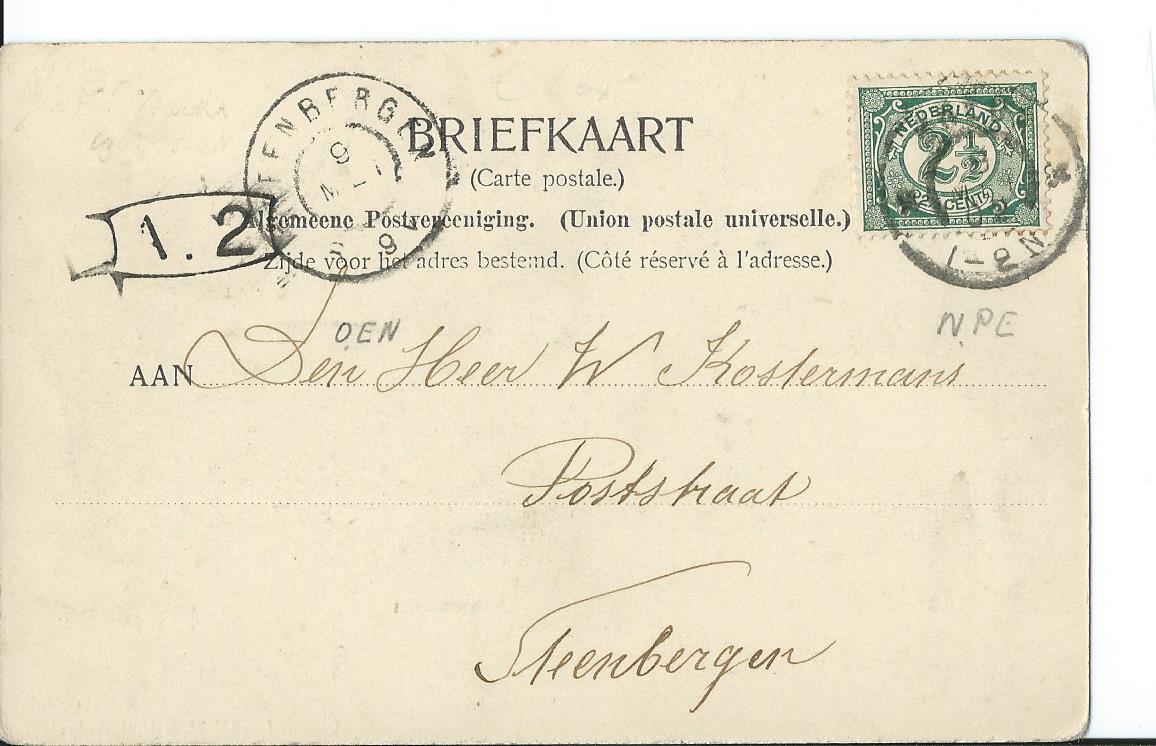 BRIEFKAART
(Carte postale.)
Algemeene Postvereeniging. (Union postale universelle.)
Zijde voor het adres bestemd. (Côté réservé à l'adresse.)
NEDERLAND
2½
CENT
1-2N
1.2
9
OEN
N.PE
AAN Den Heer W Kostermans
Poststraat
Steenbergen